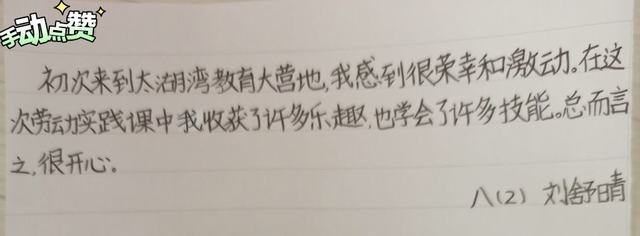 手动点赞
初次来到太湖湾教育大营地,我感到很荣幸和激动。在这
次劳动实践课中我收获了许多乐趣,也学会了许多技能。总而言
之,很开心。
八(2) 刘舒晴